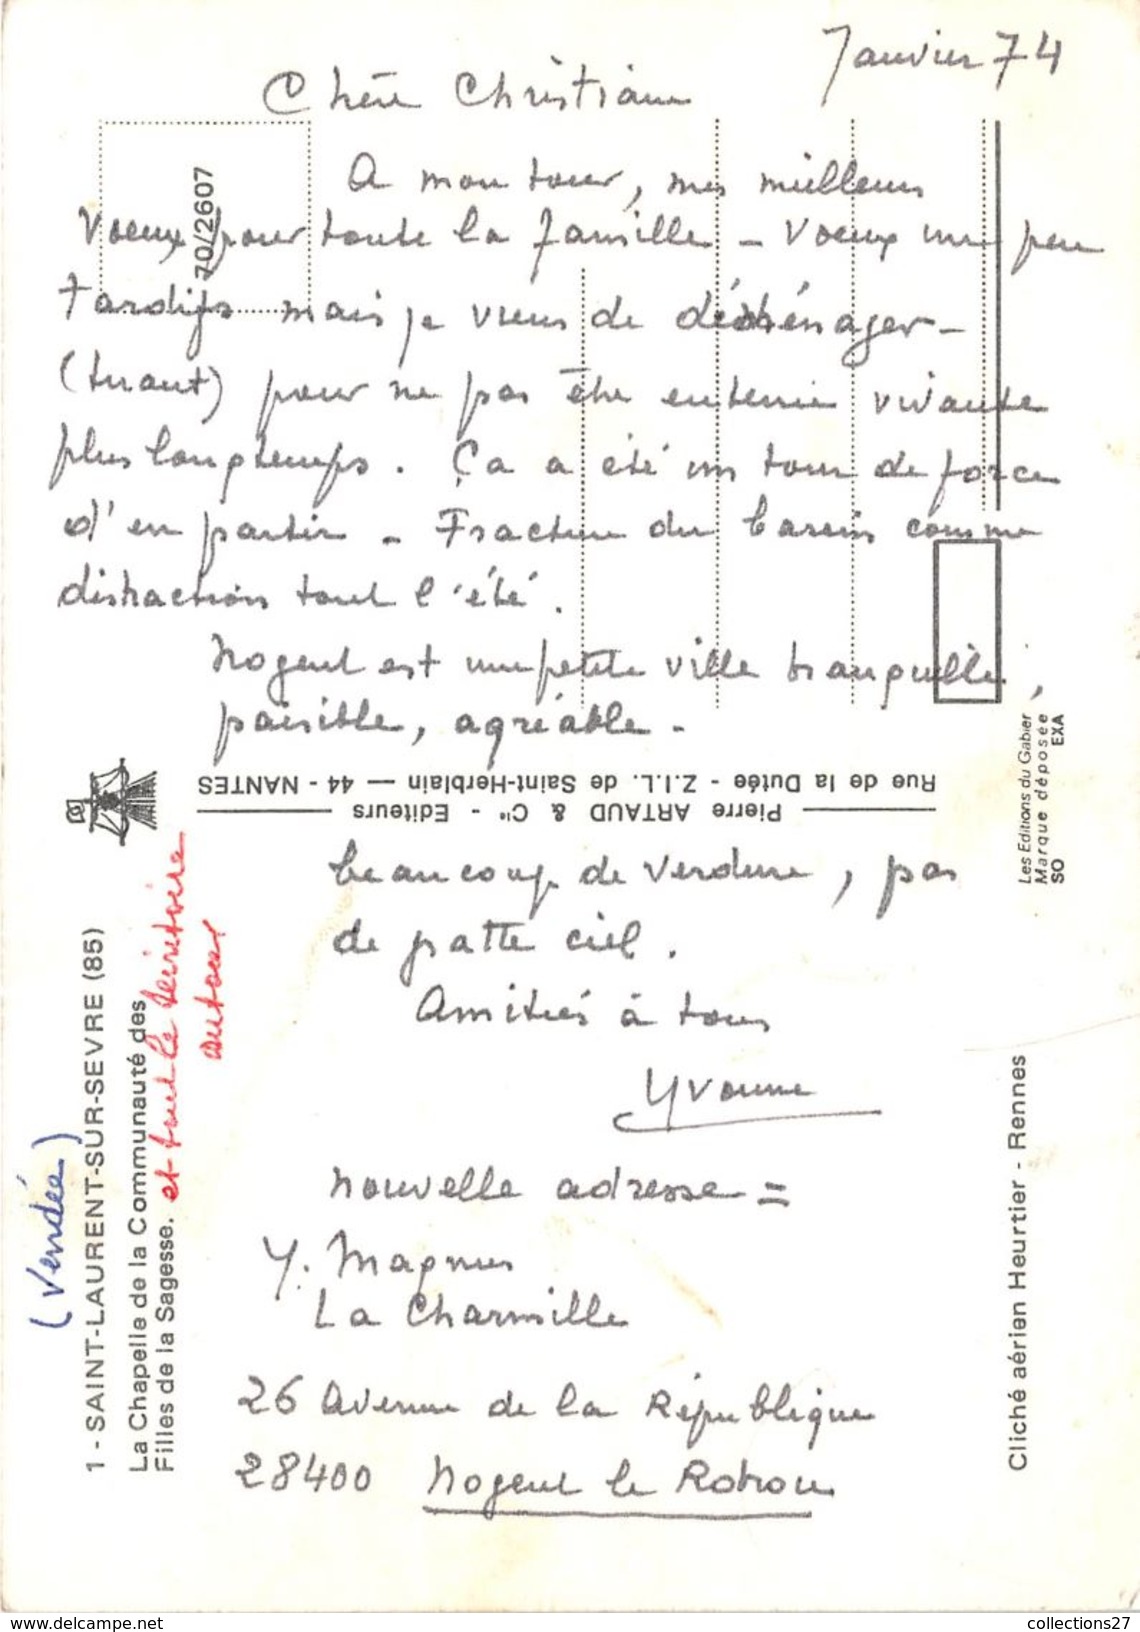 Janvier 74
Chère Christiane
A mon tour, mes meilleurs
voeux pour toute la famille - Voeux un peu
tardifs mais je viens de déménager -
(tuant) pour ne pas être enterrée vivante
plus longtemps. Ça a été un tour de force
d'en partir - Fracture du bassin comme
distraction tout l'été.
Nogent est une petite ville tranquille,
paisible, agréable -
beaucoup de verdure, pas
de patte ciel.
Amitiés à tous
Yvonne
Nouvelle adresse =
Y. Magnus
La Charmille
26 Avenue de la République
28400 Nogent le Rotrou
70/2607
Pierre ARTAUD & Cie - Editeurs
Rue de la Dutée - Z.I.L. de Saint-Herblain — 44 - NANTES
Les Editions du Gabier
Marque déposée
SO EXA
(Vendée)
1 - SAINT-LAURENT-SUR-SEVRE (85)
La Chapelle de la Communauté des
Filles de la Sagesse.
et tout le territoire
autour
Cliché aérien Heurtier - Rennes
collections27